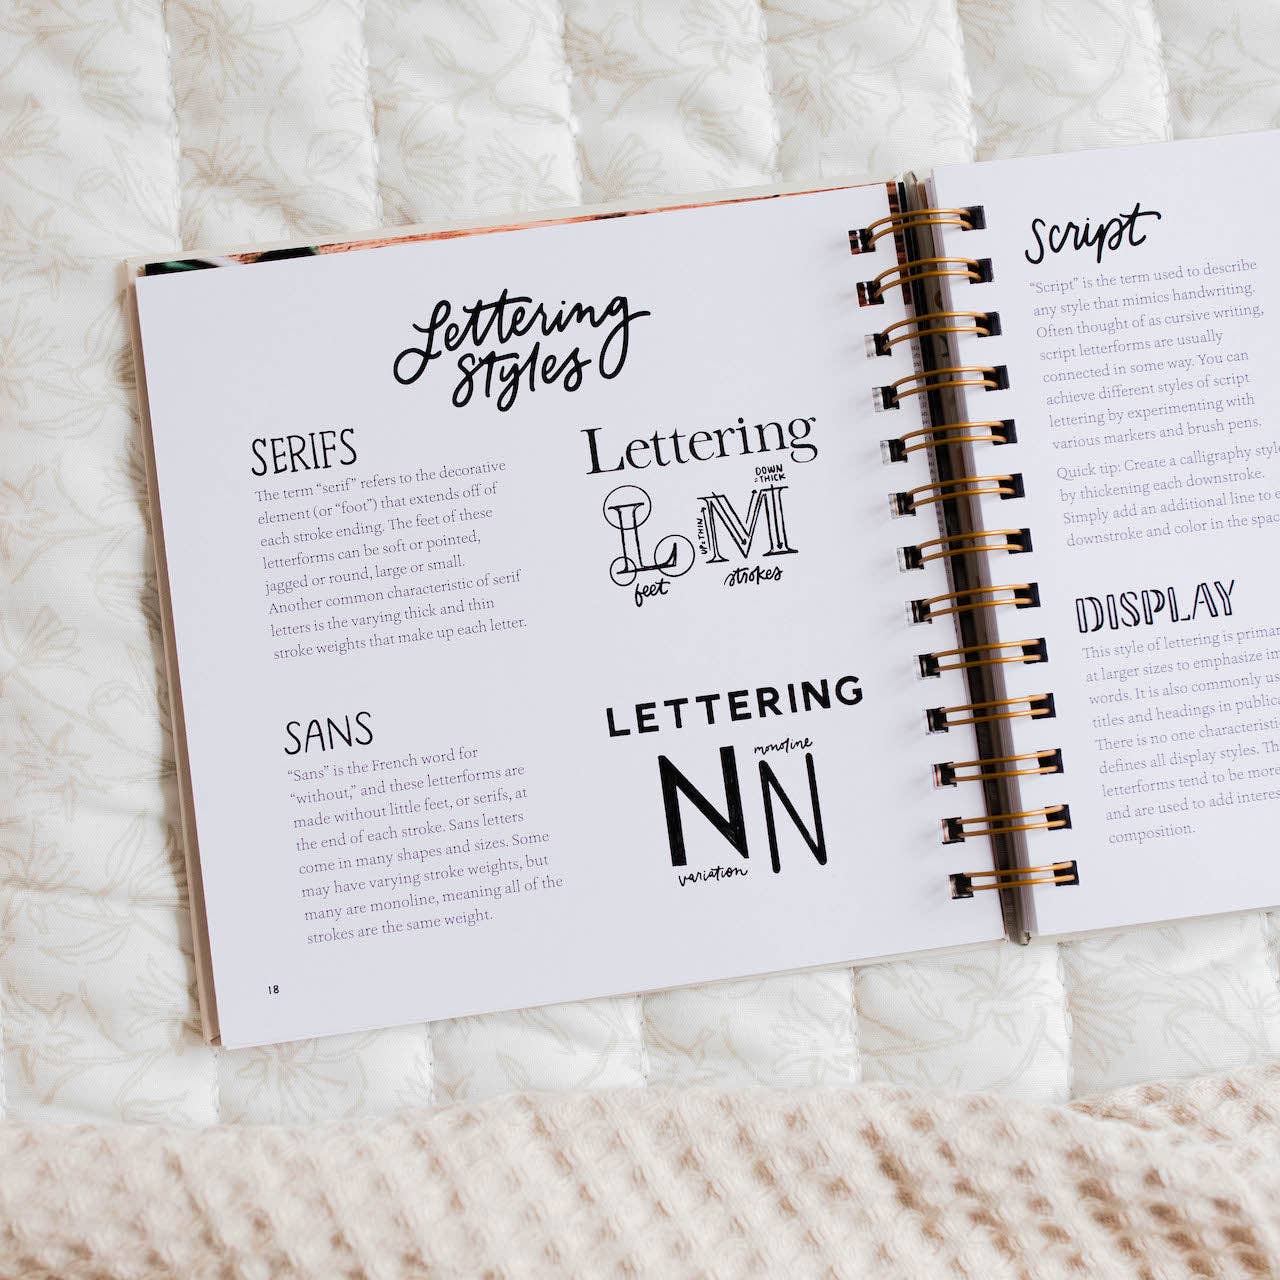 Lettering
Styles
SERIFS
The term “serif” refers to the decorative
element (or “foot”) that extends off of
each stroke ending. The feet of these
letterforms can be soft or pointed,
jagged or round, large or small.
Another common characteristic of serif
letters is the varying thick and thin
stroke weights that make up each letter.
Lettering
DOWN
= THICK
UP = THIN
LM
feet
strokes
SANS
“Sans” is the French word for
“without,” and these letterforms are
made without little feet, or serifs, at
the end of each stroke. Sans letters
come in many shapes and sizes. Some
may have varying stroke weights, but
many are monoline, meaning all of the
strokes are the same weight.
LETTERING
monoline
NN
variation
18
Script
“Script” is the term used to describe
any style that mimics handwriting.
Often thought of as cursive writing,
script letterforms are usually
connected in some way. You can
achieve different styles of script
lettering by experimenting with
various markers and brush pens.
Quick tip: Create a calligraphy style
by thickening each downstroke.
Simply add an additional line to
downstroke and color in the
DISPLAY
This style of lettering is
at larger sizes to emphasize
words. It is also commonly
titles and headings in
There is no one
defines all display styles.
letterforms tend to be more
and are used to add
composition.